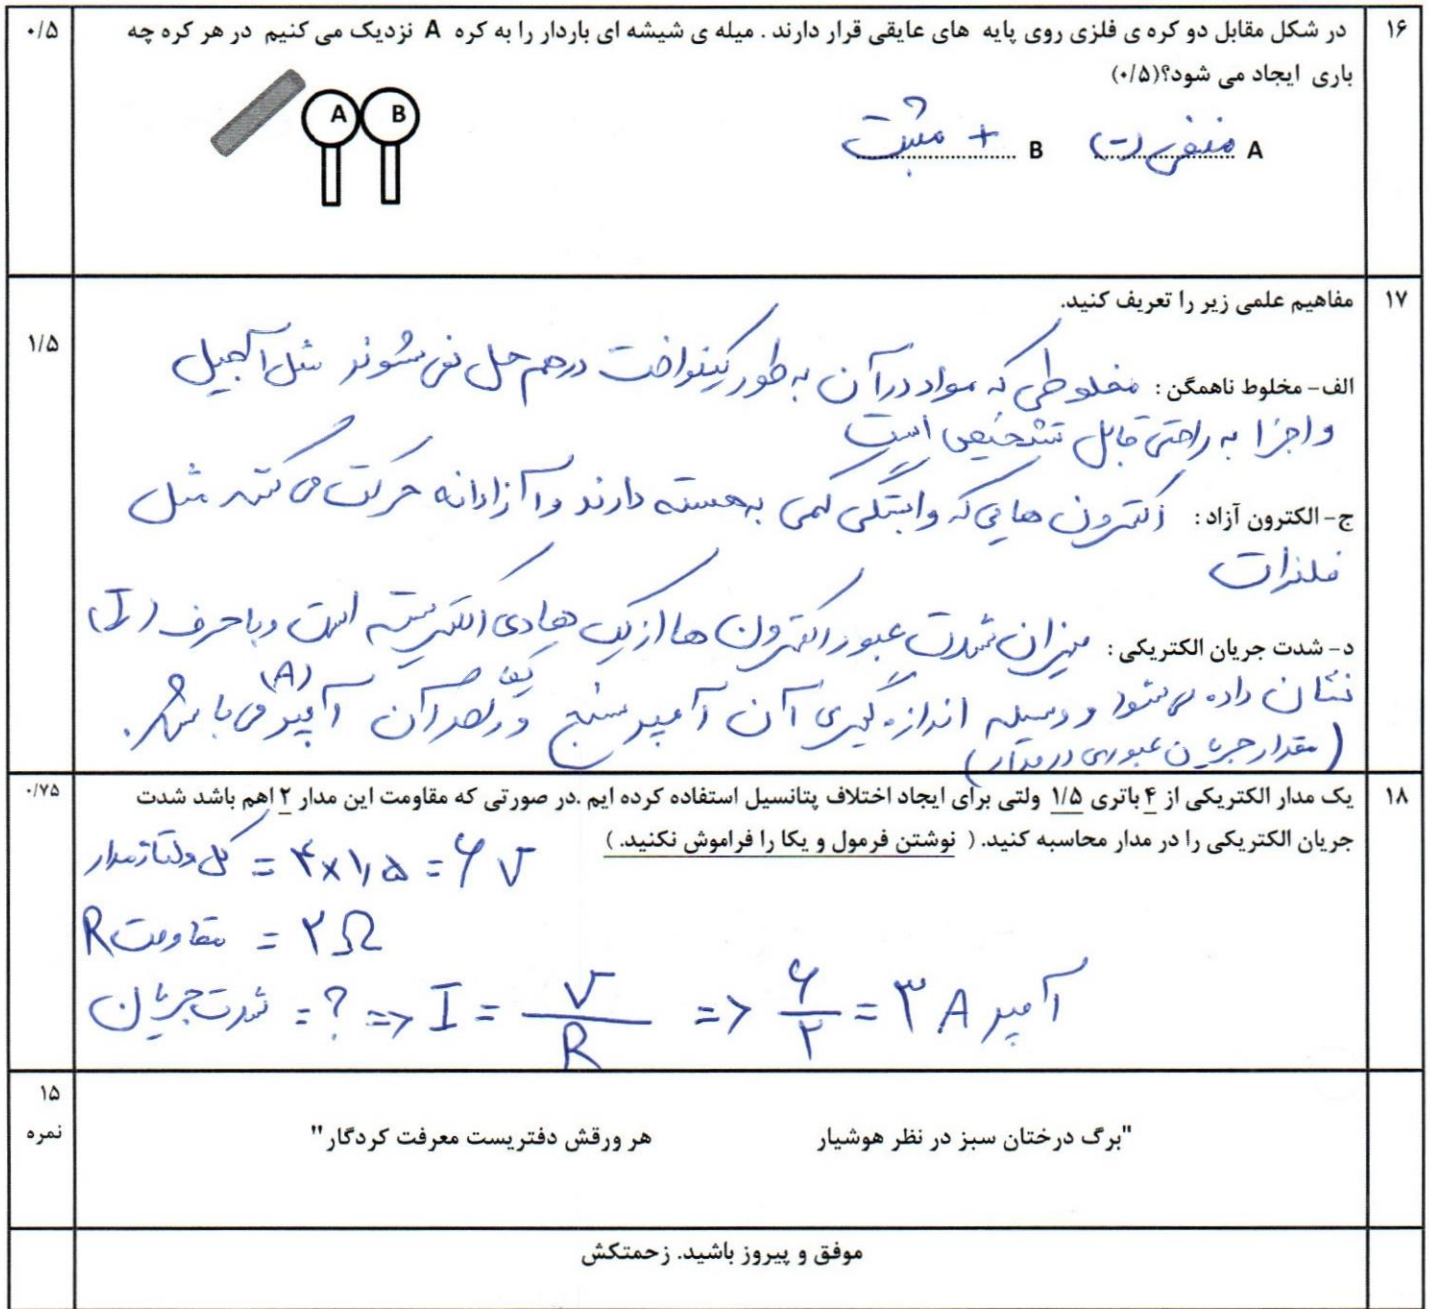 ۱۶
در شکل مقابل دو کره ی فلزی روی پایه های عایقی قرار دارند . میله ی شیشه ای باردار را به کره A نزدیک می کنیم در هر کره چه
۰/۵
باری ایجاد می شود؟(۰/۵)
A B
A منفی (-) B + مثبت
۱۷
مفاهیم علمی زیر را تعریف کنید.
۱/۵
الف- مخلوط ناهمگن : مخلوطی که مواد درآن به طور یکنواخت درهم حل نمی شوند مثل آجیل
و اجزا به راحتی قابل تشخیص است
ج- الکترون آزاد : الکترون هایی که وابستگی کمی به هسته دارند و آزادانه حرکت می کنند مثل
فلزات
د- شدت جریان الکتریکی : میزان شدت عبور الکترون ها از یک هادی الکتریسته است و با حرف (I)
نشان داده می شود و وسیله اندازه گیری آن آمپرسنج و واحد آن آمپر (A) می باشد.
(مقدار جریان عبوری در مدار)
۱۸
یک مدار الکتریکی از ۴ باتری ۱/۵ ولتی برای ایجاد اختلاف پتانسیل استفاده کرده ایم .در صورتی که مقاومت این مدار ۲ اهم باشد شدت
۰/۷۵
جریان الکتریکی را در مدار محاسبه کنید. ( نوشتن فرمول و یکا را فراموش نکنید. )
کل ولتاژ مدار = ۴×۱,۵ = ۶ V
R مقاومت = ۲Ω
شدت جریان = ? => I = V/R => ۶/۲ = ۳ A آمپر
۱۵
نمره
"برگ درختان سبز در نظر هوشیار هر ورقش دفتریست معرفت کردگار"
موفق و پیروز باشید. زحمتکش